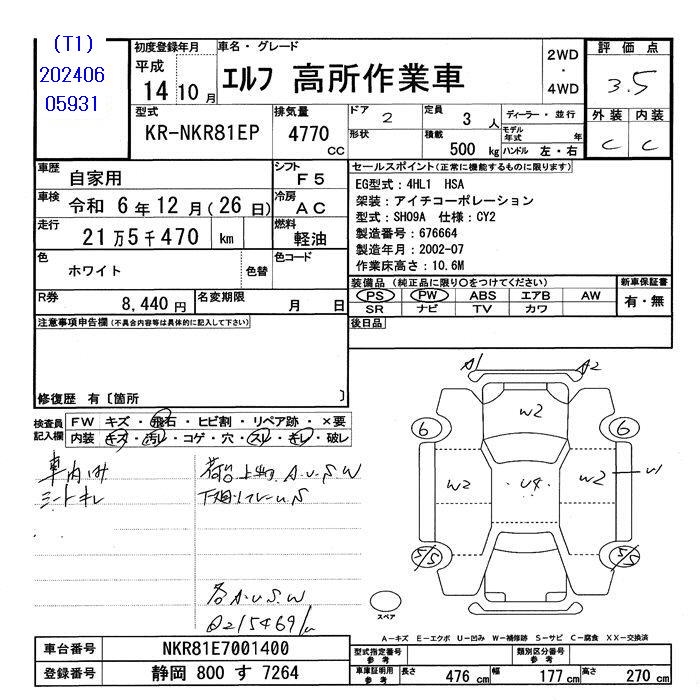 (T1)
202406
05931
初度登録年月
平成
14年10月
車名・グレード
エルフ 高所作業車
2WD
・
4WD
評価点
3.5
外装 内装
C C
型式
KR-NKR81EP
排気量
4770
CC
ドア 2
形状
定員 3人
積載 500kg
ディーラー・並行
モデル年式 年
ハンドル 左・右
車歴 自家用
シフト F5
車検 令和 6年12月(26日)
冷房 AC
走行 21万5千470 km
燃料 軽油
色 ホワイト
色替
色コード
R券 8,440円
名変期限 月 日
セールスポイント(正常に機能するものに限ります)
EG型式:4HL1 HSA
架装:アイチコーポレーション
型式:SH09A 仕様:CY2
製造番号:676664
製造年月:2002-07
作業床高さ:10.6M
装備品(純正品に限り○をつけてください)
PS PW ABS エアB AW
SR ナビ TV カワ
新車保証書
有・無
後日品
注意事項申告欄(不具合内容等は具体的に記入して下さい)
修復歴 有〔箇所 〕
検査員記入欄
FW キズ・飛石・ヒビ割・リペア跡・×要
内装 キズ・汚レ・コゲ・穴・スレ・キレ・破レ
シートキレ
A.U.S.W
各A.U.S.W
215469
A1 A2
W2
6 6
W2 U4 W2 U1
5/5 5/5
スペア
A－キズ E－エクボ U－凹み W－補修跡 S－サビ C－腐食 XX－交換済
車台番号 NKR81E7001400
登録番号 静岡 800 す 7264
型式指定番号 参考
類別区分番号 参考
車庫証明用 参考
長さ 476 cm 幅 177 cm 高さ 270 cm